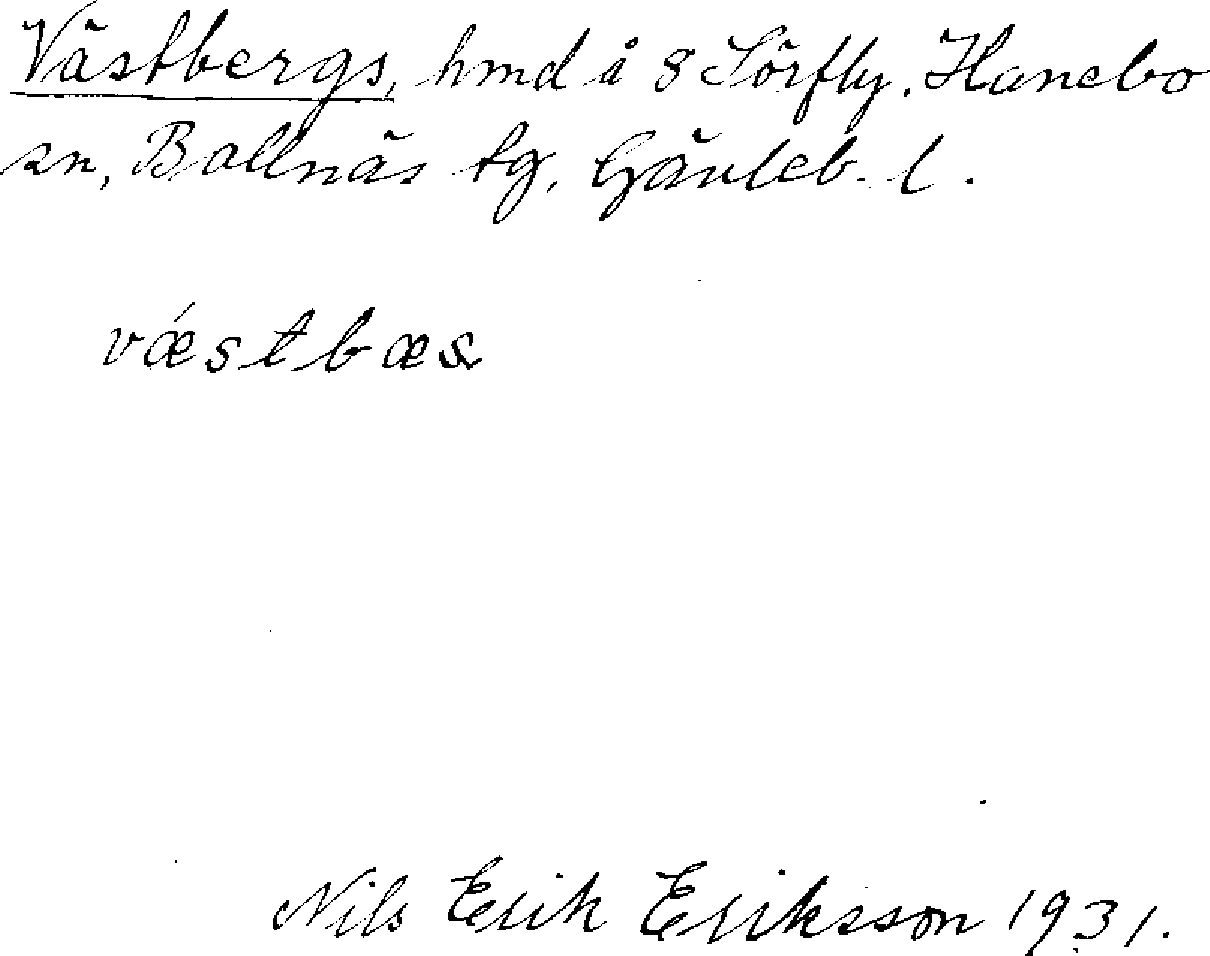 Västbergs, hmd å 8 Sörfly. Hanebo
sn, Bollnäs tg, Gävleb. l.
vǽstbæs
Nils Erik Eriksson 1931.